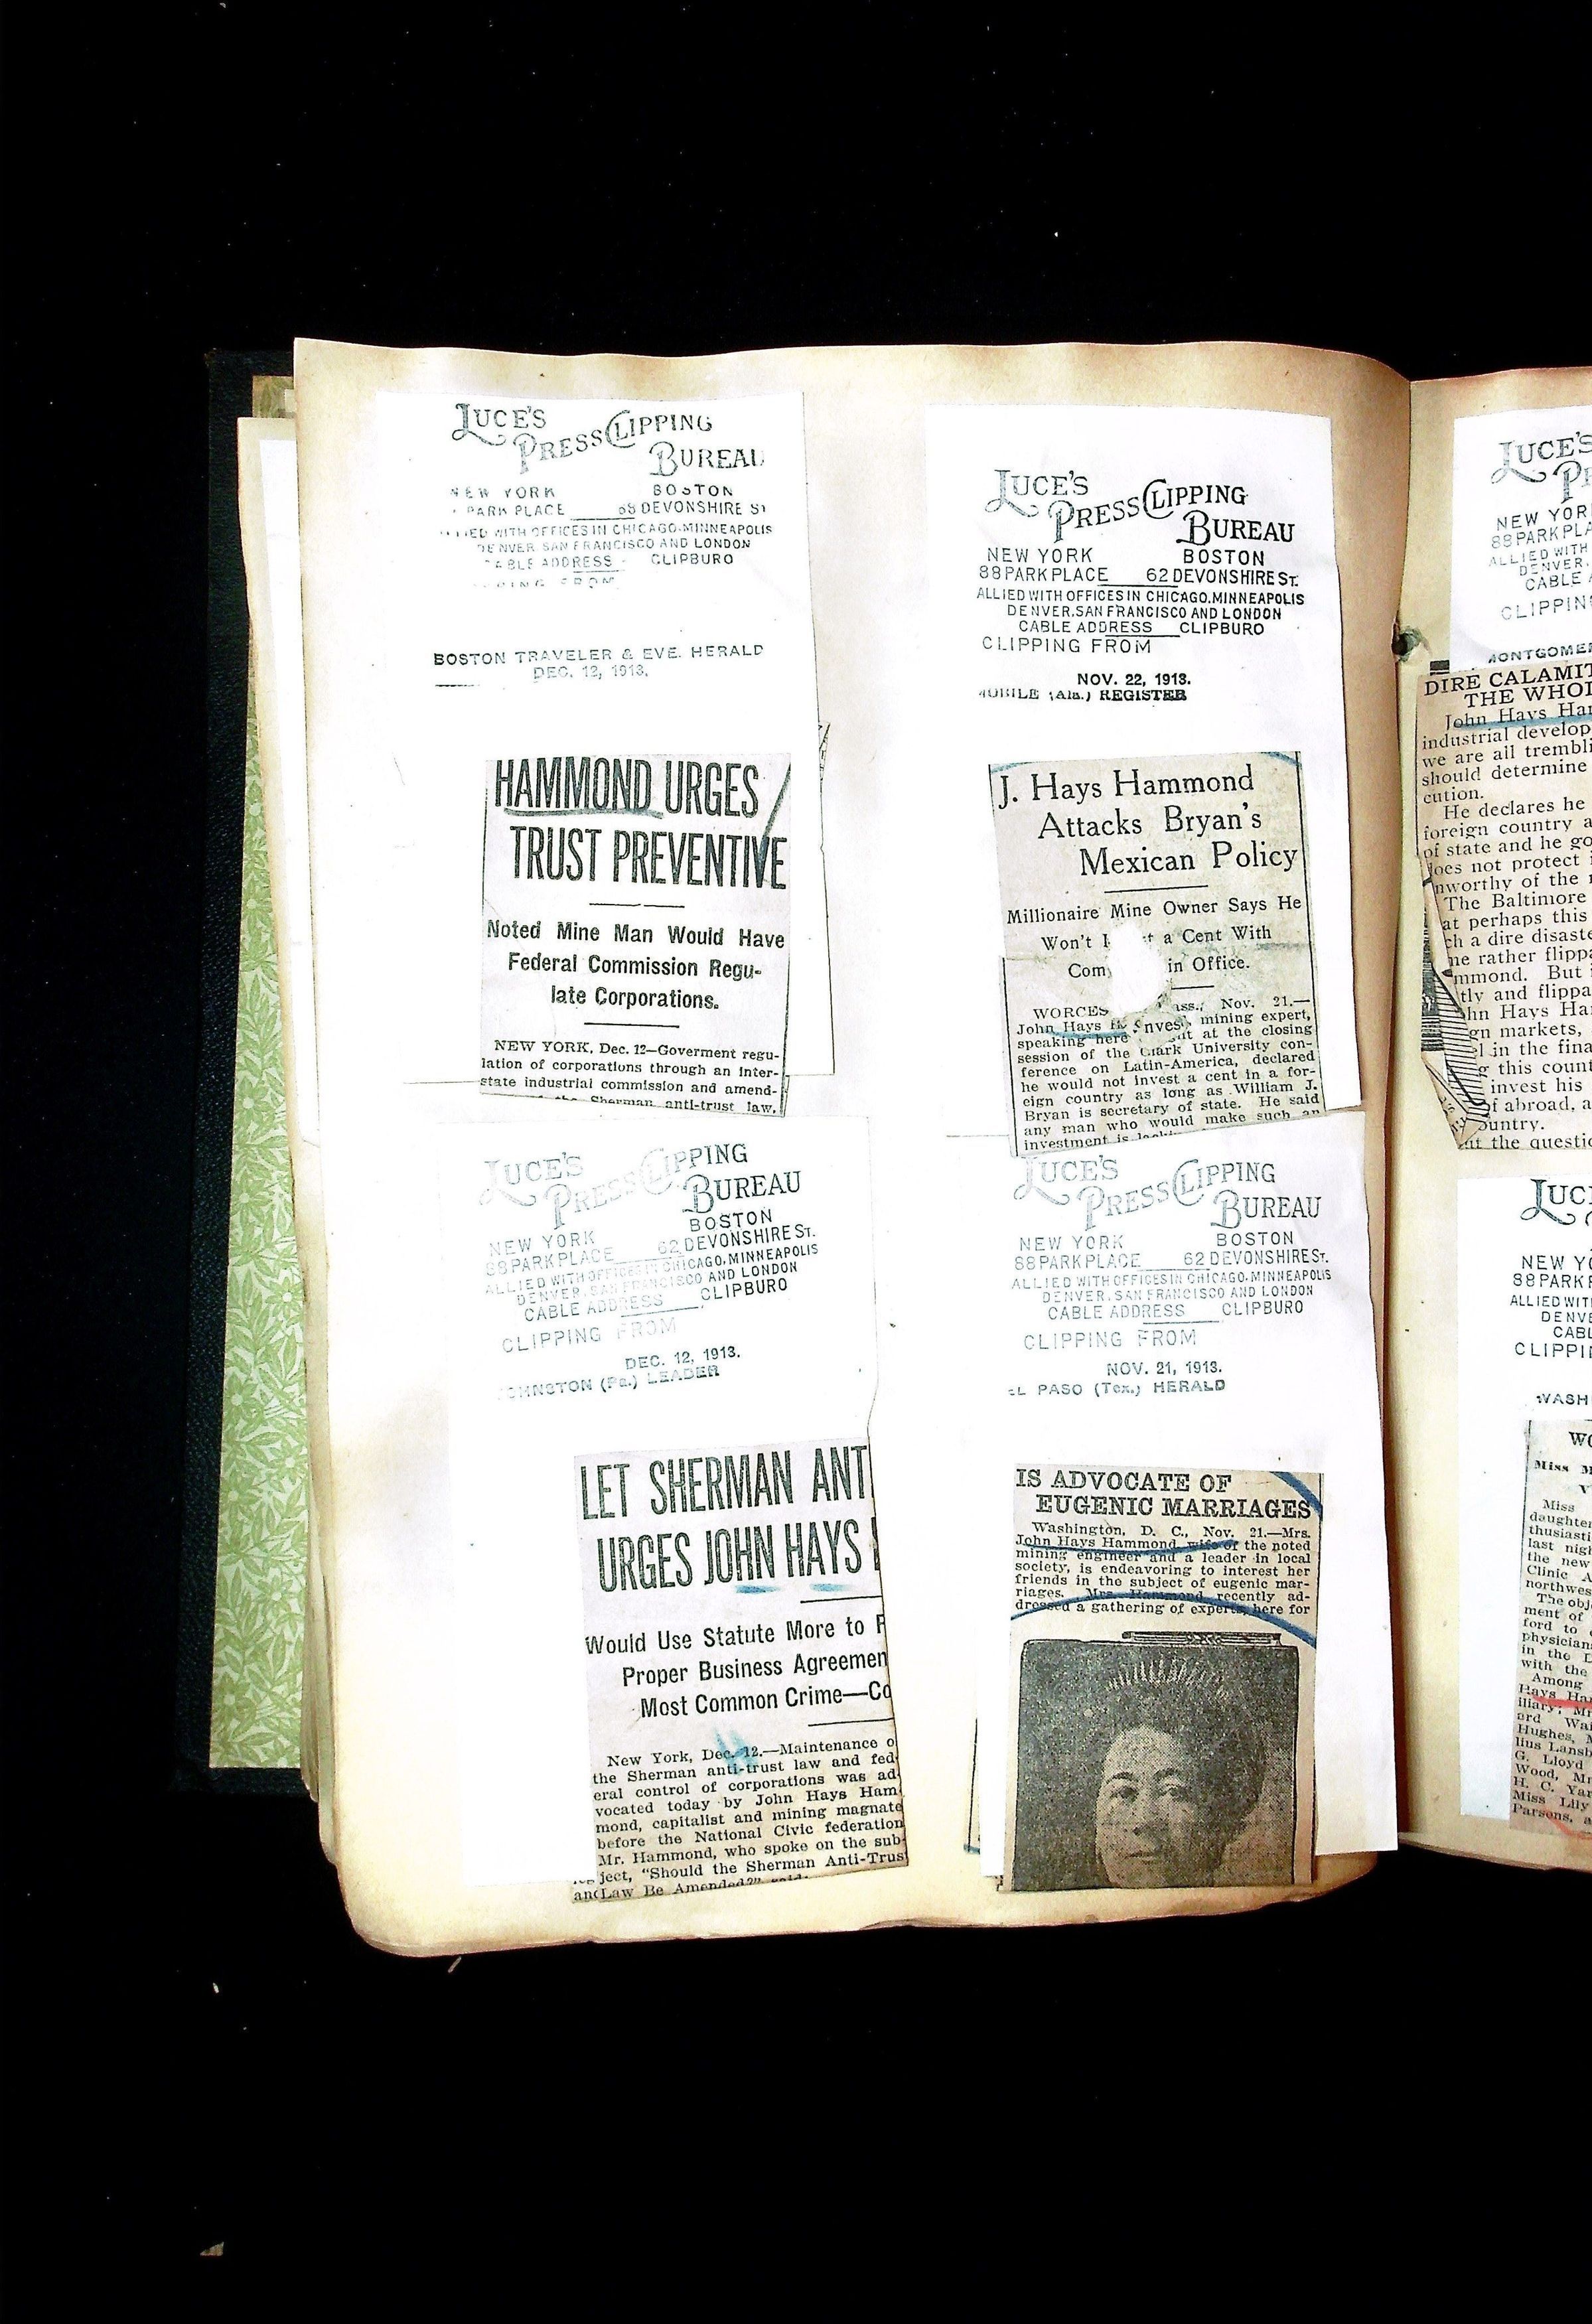 LUCE'S
PRESS CLIPPING
BUREAU
NEW YORK BOSTON
PARK PLACE 68 DEVONSHIRE ST
WITH OFFICES IN CHICAGO, MINNEAPOLIS
DENVER, SAN FRANCISCO AND LONDON
CABLE ADDRESS CLIPBURO
FROM
BOSTON TRAVELER & EVE. HERALD
DEC. 12, 1913.
HAMMOND URGES
TRUST PREVENTIVE
Noted Mine Man Would Have
Federal Commission Regu-
late Corporations.
NEW YORK, Dec. 12—Goverment regu-
lation of corporations through an inter-
state industrial commission and amend-
the Sherman anti-trust law,
LUCE'S
PRESS CLIPPING
BUREAU
NEW YORK BOSTON
88 PARK PLACE 62 DEVONSHIRE ST.
ALLIED WITH OFFICES IN CHICAGO, MINNEAPOLIS
DENVER, SAN FRANCISCO AND LONDON
CABLE ADDRESS CLIPBURO
CLIPPING FROM
DEC. 12, 1913.
(Pa.) LEADER
LET SHERMAN ANT
URGES JOHN HAYS
Would Use Statute More to
Proper Business Agreemen
Most Common Crime—Co
New York, Dec. 12.—Maintenance o
the Sherman anti-trust law and fed-
eral control of corporations was ad-
vocated today by John Hays Ham-
mond, capitalist and mining magnate
before the National Civic federation
Mr. Hammond, who spoke on the sub-
ject, "Should the Sherman Anti-Trus
and Law Be Amended?" said:
LUCE'S
PRESS CLIPPING
BUREAU
NEW YORK BOSTON
88 PARK PLACE 62 DEVONSHIRE ST.
ALLIED WITH OFFICES IN CHICAGO, MINNEAPOLIS
DENVER, SAN FRANCISCO AND LONDON
CABLE ADDRESS CLIPBURO
CLIPPING FROM
NOV. 22, 1913.
MOBILE (Ala.) REGISTER
J. Hays Hammond
Attacks Bryan's
Mexican Policy
Millionaire Mine Owner Says He
Won't a Cent With
Com in Office.
WORCES ass., Nov. 21.—
John Hays H nves mining expert,
speaking here at the closing
session of the Clark University con-
ference on Latin-America, declared
he would not invest a cent in a for-
eign country as long as William J.
Bryan is secretary of state. He said
any man who would make such an
investment is
LUCE'S
PRESS CLIPPING
BUREAU
NEW YORK BOSTON
88 PARK PLACE 62 DEVONSHIRE ST.
ALLIED WITH OFFICES IN CHICAGO, MINNEAPOLIS
DENVER, SAN FRANCISCO AND LONDON
CABLE ADDRESS CLIPBURO
CLIPPING FROM
NOV. 21, 1913.
EL PASO (Tex.) HERALD
IS ADVOCATE OF
EUGENIC MARRIAGES
Washington, D. C., Nov. 21.—Mrs.
John Hays Hammond, wife of the noted
mining engineer and a leader in local
society, is endeavoring to interest her
friends in the subject of eugenic mar-
riages. Mrs. Hammond recently ad-
dressed a gathering of experts here for
LUCE'S
NEW YOR
88 PARK PLA
ALLIED WITH
DENVER,
CABLE
CLIPPIN
MONTGOMER
DIRE CALAMIT
THE WHOL
John Hays Ha
industrial develop
we are all trembli
should determine
cution.
He declares he
foreign country a
of state and he go
does not protect
nworthy of the
The Baltimore
at perhaps this
ch a dire disaste
ne rather flippa
mmond. But
tly and flippa
hn Hays Ha
gn markets,
l in the fina
g this count
invest his
f abroad, a
ountry.
ut the questio
LUC
NEW YO
88 PARK P
ALLIED WIT
DENV
CABL
CLIPPI
WASH
WO
Miss M
V
Miss
daughter
thusiasti
last nigh
the new
Clinic A
northwes
The obj
ment of
ford to
physician
in the D
with the
Among
Hays Ha
iliary; Mr
ard Wa
Hughes, M
lius Lansb
G. Lloyd
Wood, Mr
H. C. Yar
Miss Lily
Parsons, a